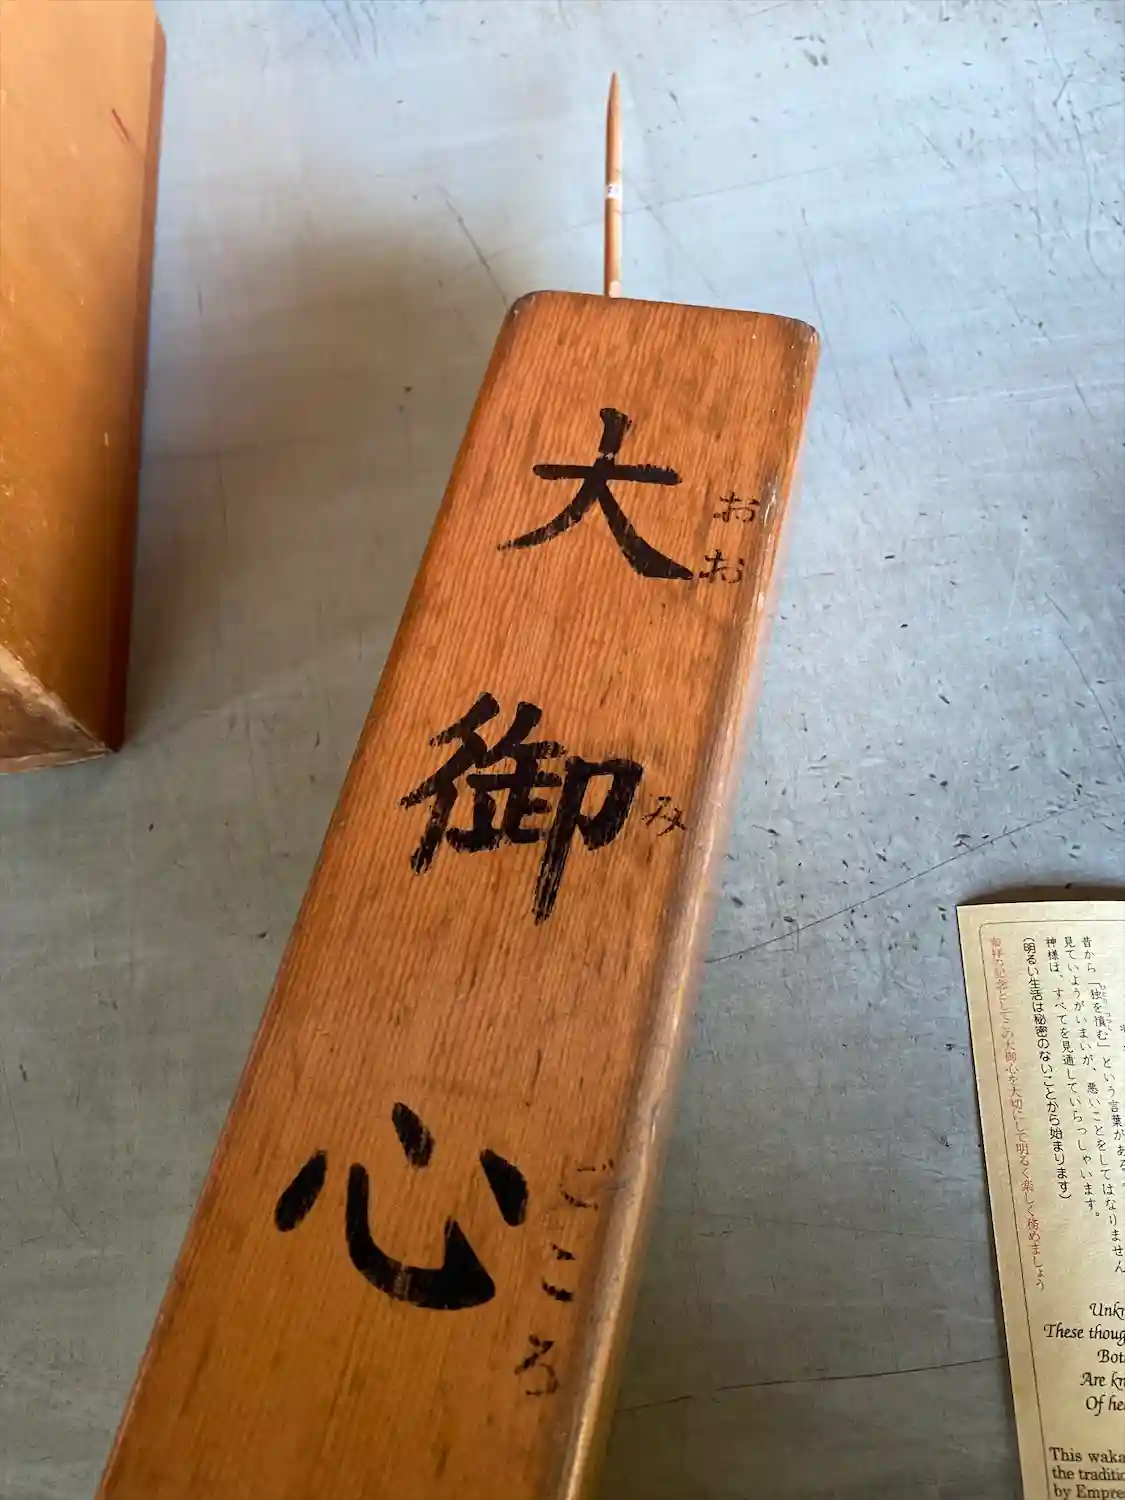 大御心
おおみごころ
昔から「独を慎む」という言葉がある。
見ていようがいまいが、悪いことをしてはなりません
神様は、すべてを見通していらっしゃいます。
(明るい生活は秘密のないことから始まります)
記念としてこの大御心を大切にして明るく楽しく務めましょう
These
Of
This waka
the
by